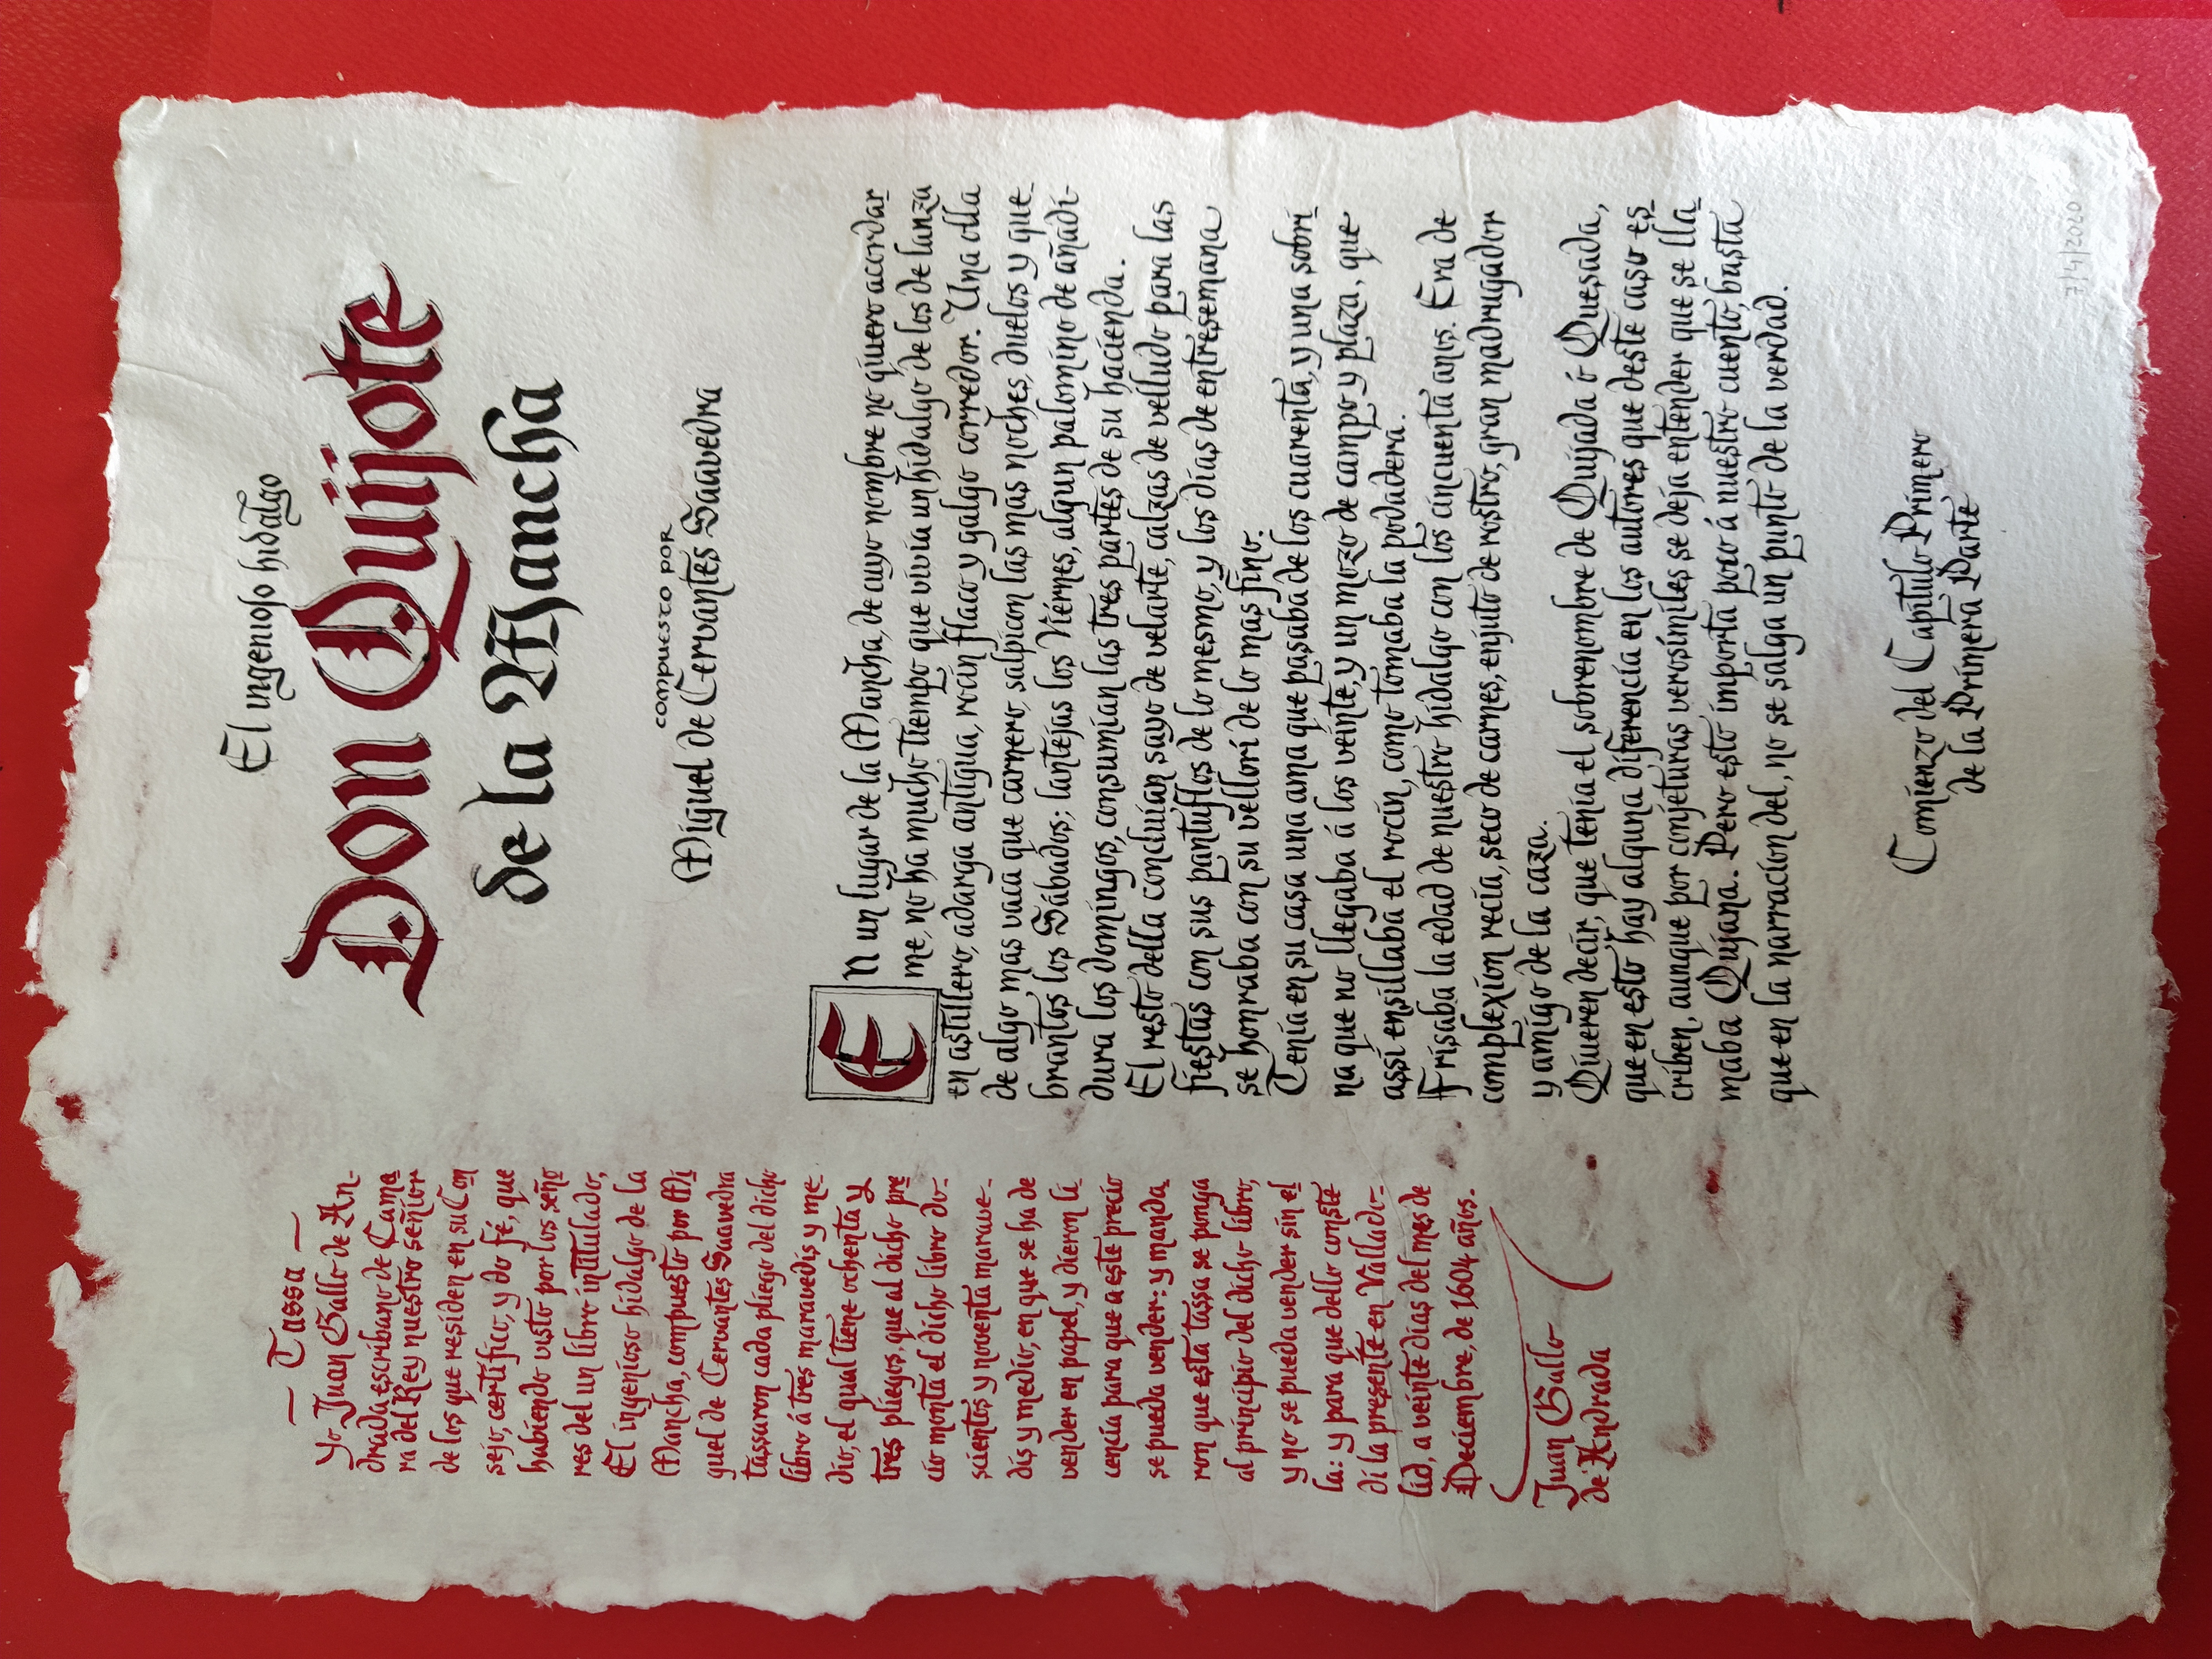 El ingenioso hidalgo
Don Quijote
de la Mancha
compuesto por
Miguel de Cervantes Saavedra
— Tassa —
Yo Juan Gallo de An-
drada escribano de Cama
ra del Rey nuestro señior
de los que residen en su Con
sejo, certifico, y do fé, que
habiendo visto por los seño
res del un libro intitulado,
El ingenioso hidalgo de la
Mancha, compuesto por Mi
guel de Cervantes Saavedra
tassaron cada pliego del dicho
libro á tres maravedis y me-
dio, el qual tiene ochenta y
tres pliegos, que al dicho pre
cio monta el dicho libro do-
scientos y noventa marave-
dis y medio, en que se ha de
vender en papel, y dieron li
cencia para que a este precio
se pueda vender: y manda
ron que esta tassa se ponga
al principio del dicho libro,
y no se pueda vender sin el
la: y para que dello conste
di la presente en Vallado-
lid, a veinte dias del mes de
Deciembre, de 1604 años.
Juan Gallo
de Andrada
En un lugar de la Mancha, de cuyo nombre no quiero acordar
me, no ha mucho tiempo que vivía un hidalgo de los de lanza
en astillero, adarga antigua, rocin flaco y galgo corredor. Una olla
de algo mas vaca que carnero, salpicon las mas noches, duelos y que
brantos los Sábados; lantejas los Viérnes, algun palomino de añadi-
dura los domingos, consumían las tres partes de su hacienda.
El resto della concluían sayo de velarte, calzas de velludo para las
fiestas con sus pantuflos de lo mesmo, y los días de entresemana
se honraba con su vellorí de lo mas fino.
Tenía en su casa una ama que pasaba de los cuarenta, y una sobri
na que no llegaba á los veinte, y un mozo de campo y plaza, que
assí ensillaba el rocín, como tomaba la podadera.
Frisaba la edad de nuestro hidalgo con los cincuenta años. Era de
complexion recia, seco de carnes, enjuto de rostro, gran madrugador
y amigo de la caza.
Quieren decir, que tenía el sobrenombre de Quijada ó Quesada,
que en esto hay alguna diferencia en los autores que deste caso es
criben, aunque por conjeturas verosímiles se deja entender que se lla
maba Quijana. Pero esto importa poco á nuestro cuento, basta
que en la narracion del, no se salga un punto de la verdad.
Comienzo del Capítulo Primero
de la Primera Parte
7/4/2020